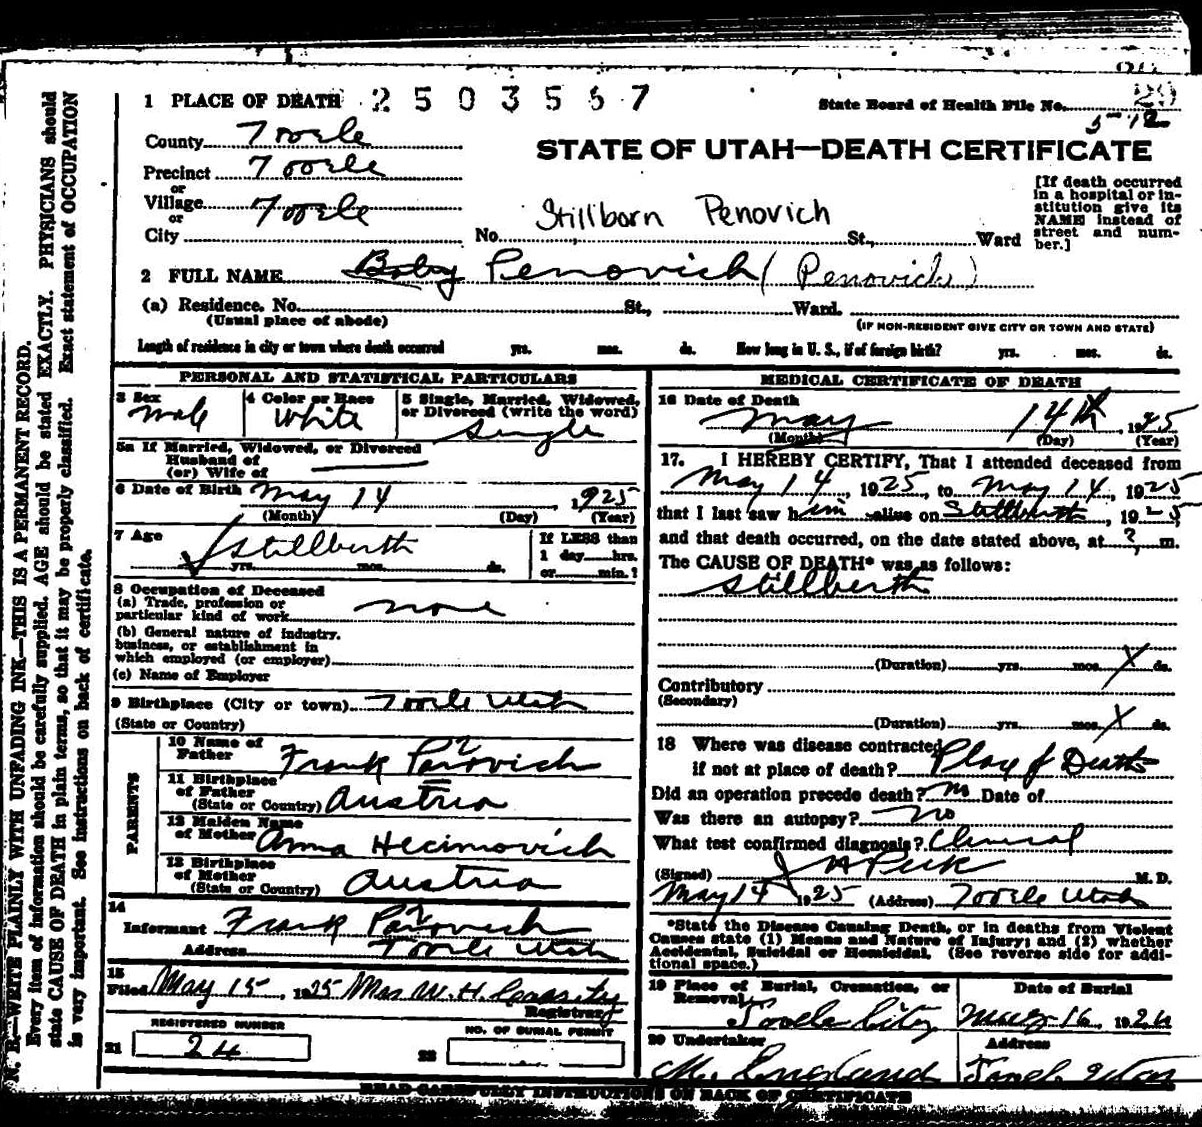 1 PLACE OF DEATH 2503567 State Board of Health File No. 29
5-12
County Tooele
STATE OF UTAH—DEATH CERTIFICATE
Precinct Tooele
or
Village Tooele
or
City No. Stillborn Penovich St., Ward
[If death occurred
in a hospital or in-
stitution give its
NAME instead of
street and num-
ber.]
2 FULL NAME Baby Penovich (Penovich)
(a) Residence. No. St., Ward.
(Usual place of abode) (IF NON-RESIDENT GIVE CITY OR TOWN AND STATE)
Length of residence in city or town where death occurred yrs. mos. ds. How long in U. S., if of foreign birth? yrs. mos. ds.
PERSONAL AND STATISTICAL PARTICULARS
3 Sex 4 Color or Race 5 Single, Married, Widowed,
or Divorced (write the word)
male White single
5a If Married, Widowed, or Divorced
Husband of
(or) Wife of
6 Date of Birth May 14, 1925
(Month) (Day) (Year)
7 Age Stillberth
yrs. mos. ds.
If LESS than
1 day hrs.
or min.?
8 Occupation of Deceased
(a) Trade, profession or
particular kind of work none
(b) General nature of industry.
business, or establishment in
which employed (or employer)
(c) Name of Employer
9 Birthplace (City or town) Tooele Utah
(State or Country)
PARENTS
10 Name of
Father Frank Penovich
11 Birthplace
of Father
(State or Country) Austria
12 Maiden Name
of Mother Anna Hecimovich
13 Birthplace
of Mother
(State or Country) Austria
14
Informant Frank Penovich
Address Tooele Utah
15
Filed May 15, 1925 Mrs W. H.
Registrar
REGISTERED NUMBER
21 24
NO. OF BURIAL PERMIT
22
MEDICAL CERTIFICATE OF DEATH
16 Date of Death
May 14th, 1925
(Month) (Day) (Year)
17. I HEREBY CERTIFY, That I attended deceased from
May 14, 1925, to May 14, 1925
that I last saw him alive on Stillberth, 1925,
and that death occurred, on the date stated above, at ? m.
The CAUSE OF DEATH* was as follows:
Stillberth
(Duration) yrs. mos. X ds.
Contributory
(Secondary)
(Duration) yrs. mos. X ds.
18 Where was disease contracted
if not at place of death? Place of Death
Did an operation precede death? no Date of
Was there an autopsy? no
What test confirmed diagnosis? Clinical
(Signed) J H Peck M. D.
May 14 1925 (Address) Tooele Utah
*State the Disease Causing Death, or in deaths from Violent
Causes state (1) Means and Nature of Injury; and (2) whether
Accidental, Suicidal or Homicidal. (See reverse side for addi-
tional space.)
19 Place of Burial, Cremation, or
Removal Date of Burial
Tooele City May 16, 1924
20 Undertaker Address
M. England Tooele Utah
READ CAREFULLY INSTRUCTIONS ON BACK OF CERTIFICATE
N. B.—WRITE PLAINLY WITH UNFADING INK—THIS IS A PERMANENT RECORD.
Every item of information should be carefully supplied. AGE should be stated EXACTLY. PHYSICIANS should
state CAUSE OF DEATH in plain terms, so that it may be properly classified. Exact statement of OCCUPATION
is very important. See instructions on back of certificate.